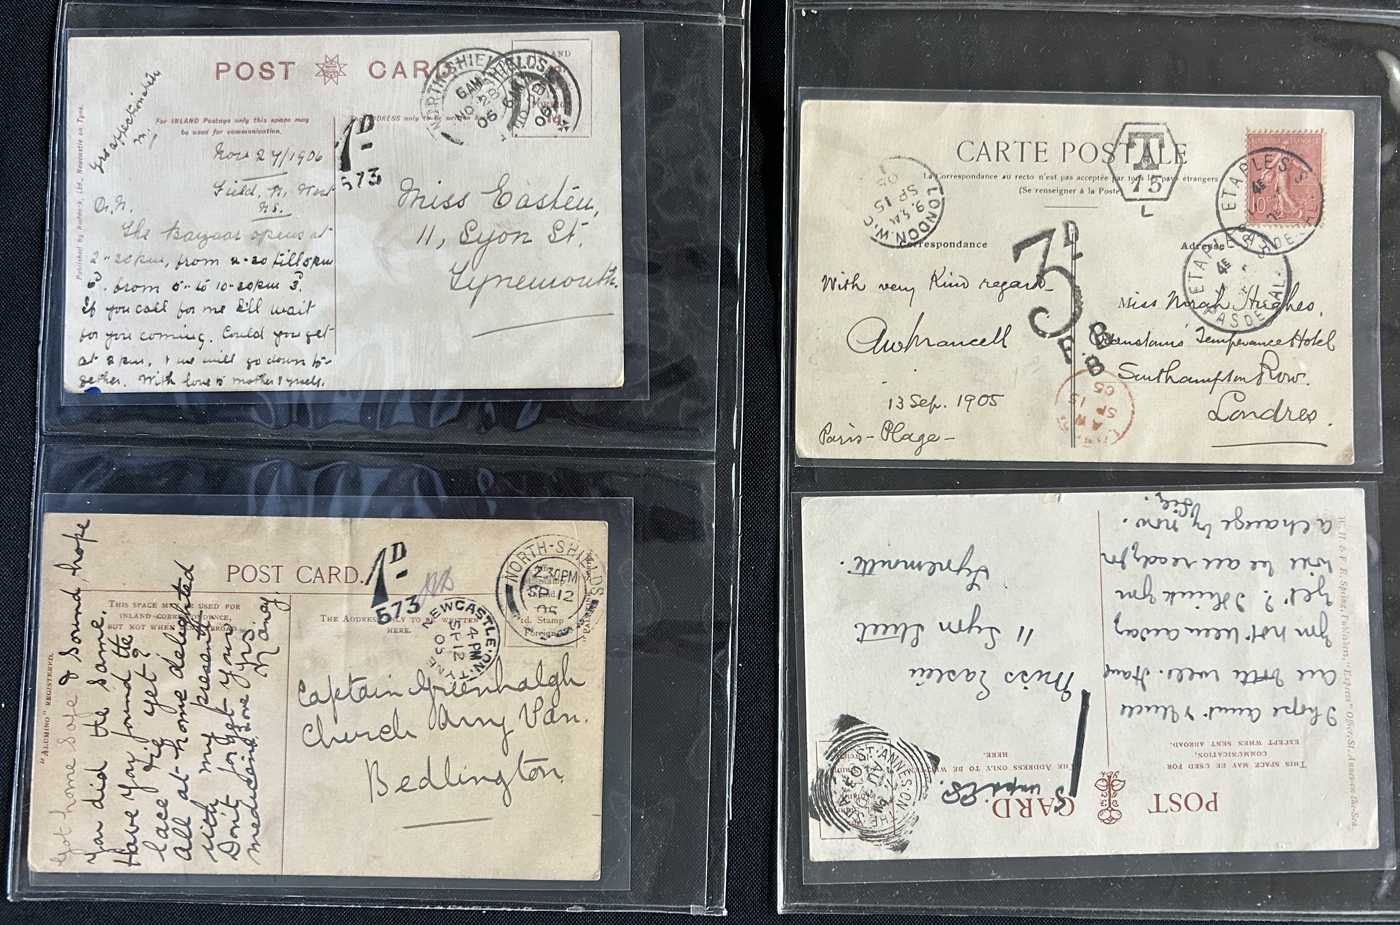 POST CARD
For INLAND Postage only this space may
be used for communication.
ADDRESS only to be written
Published by Ltd., Newcastle on Tyne.
NORTH-SHIELDS
6 AM
NO 28
06
NORTH-SHIELDS
6 AM
NO 28
06
INLAND
½d.
1d.
1D
573
Nov 27/1906
Field, W,
NS.
The Bazaar opens at
from
from
If you call for me I'll wait
for you coming. Could you get
at 2 pm, & we will go down to-
gether. With love to mother &
Miss Eastën,
11, Syon St.
Tynemouth.
POST CARD.
THIS SPACE MAY BE USED FOR
INLAND CORRESPONDENCE,
BUT NOT WHEN
THE ADDRESS ONLY TO BE WRITTEN
HERE.
"ALUMINO" REGISTERED.
1D
573
NEWCASTLE-ON-TYNE
4 PM
SP 12
05
NORTH-SHIELDS
2.30PM
SP 12
05
½d. Stamp
Foreign
Got home safe & Sound, hope
you did the same.
Have you found the
lace dig yet?
All at home delighted
with my presents.
Don't forget your
medicine. Love yrs
Nancy.
Captain Greenhalgh
Church Army Van.
Bedlington.
CARTE POSTALE
La Correspondance au recto n'est pas acceptée par tous les pays étrangers
(Se renseigner à la Poste)
Correspondance
Adresse
T
15
L
LONDON.W.C
9.5 AM
SP 15
05
10
ETAPLES
PAS DE CALAIS
ETAPLES
PAS-DE-CALAIS
3D
F.B
B
SP 15
05
With very Kind regards
13 Sep. 1905
Paris-Plage-
Miss Norah Hughes,
Temperance Hotel
Southampton Row.
Londres
POST CARD
THIS SPACE MAY BE USED FOR
COMMUNICATION,
EXCEPT WHEN SENT ABROAD.
THE ADDRESS ONLY TO BE WRITTEN
HERE.
W. H. & F. R. Spring, Publishers, "Express" Office, St. Annes-on-the-Sea.
ST·ANNES-ON-THE-SEA
I hope Aunt & Uncle
are both well. Have
you not been away
yet? I think you
will be all ready for
a change by now.
Miss Eastën
11 Syon Street
Tynemouth.